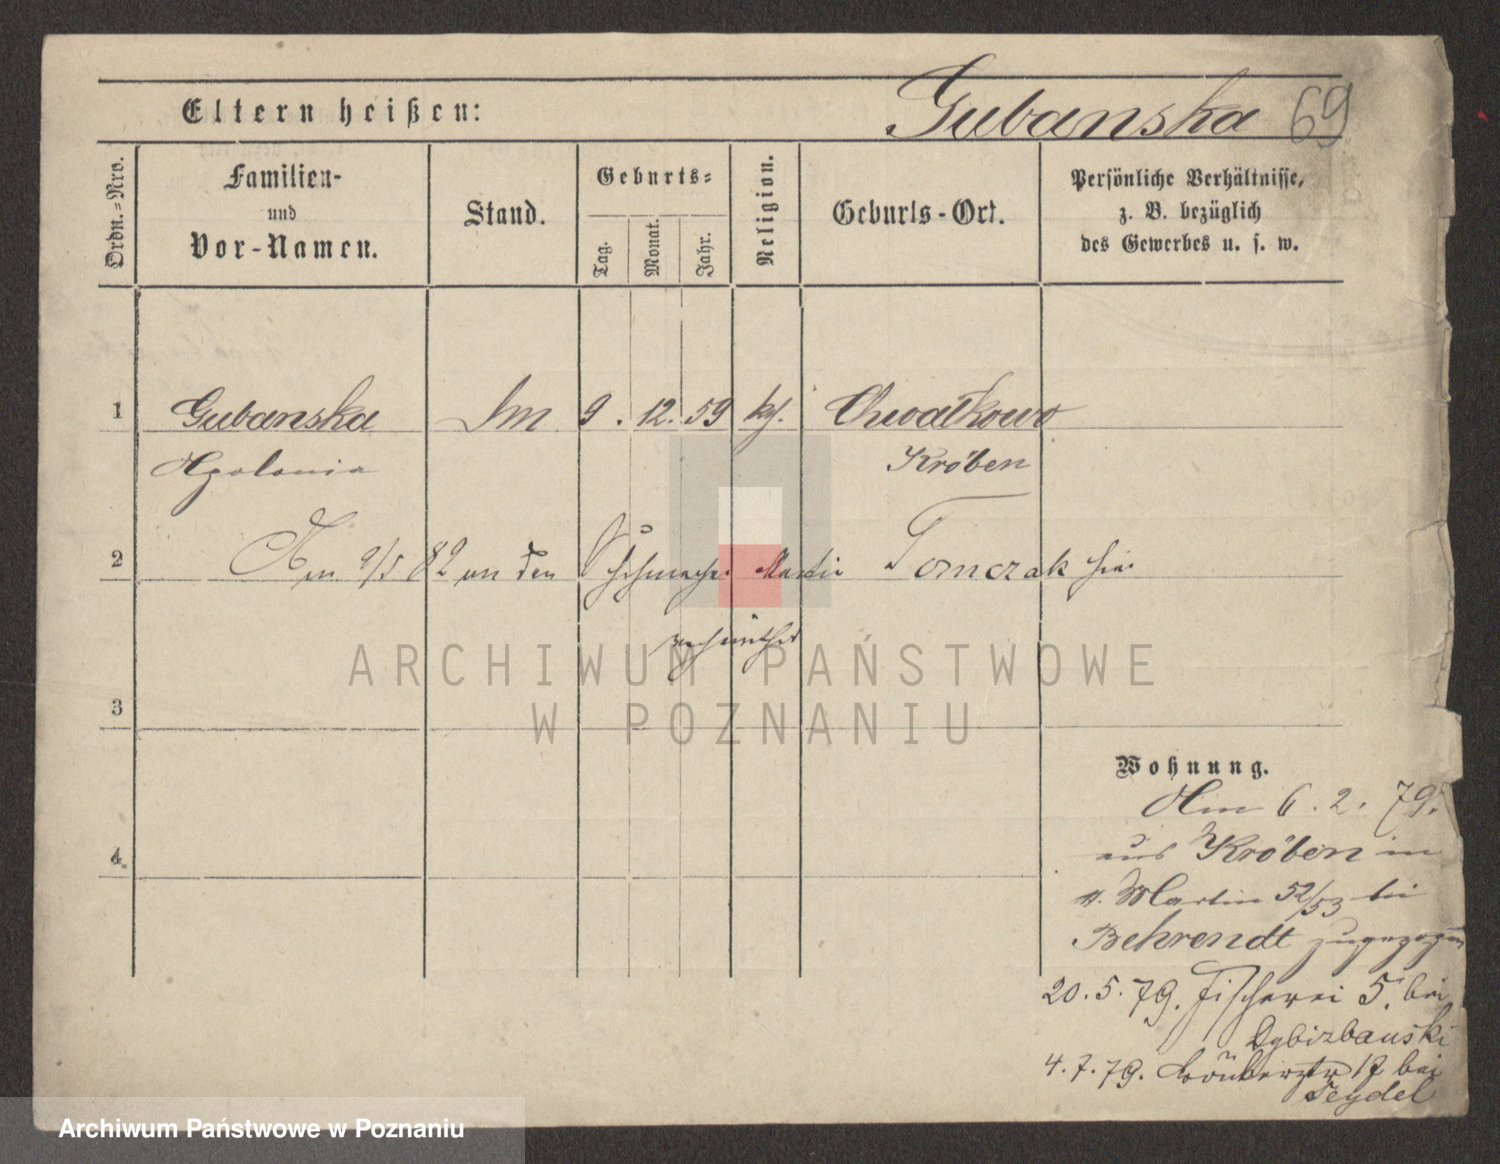 Eltern heißen:
Gubanska 69
Ordn.-Nro.
Familien-
und
Vor-Namen.
Stand.
Geburts-
Tag.
Monat.
Jahr.
Religion.
Geburts-Ort.
Persönliche Verhältnisse,
z. B. bezüglich
des Gewerbes u. s. w.
1 Gubanska 9. 12. 59 kt. Chwalkowo
Apolonia Kröben
2 Am 9/5 82 an den Schuhmacher Martin Tomczak hier
verheirathet
3
ARCHIWUM PAŃSTWOWE
W POZNANIU
4
Wohnung.
Am 6. 2. 79.
aus Kröben in
St. Martin 52/53 bei
Behrendt zugezogen
20. 5. 79. Fischerei 5. bei
Dybizbanski
4. 7. 79. bei
Seydel
Archiwum Państwowe w Poznaniu